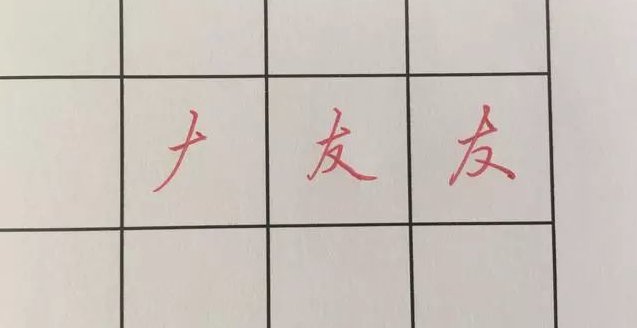 𠂇 友 友